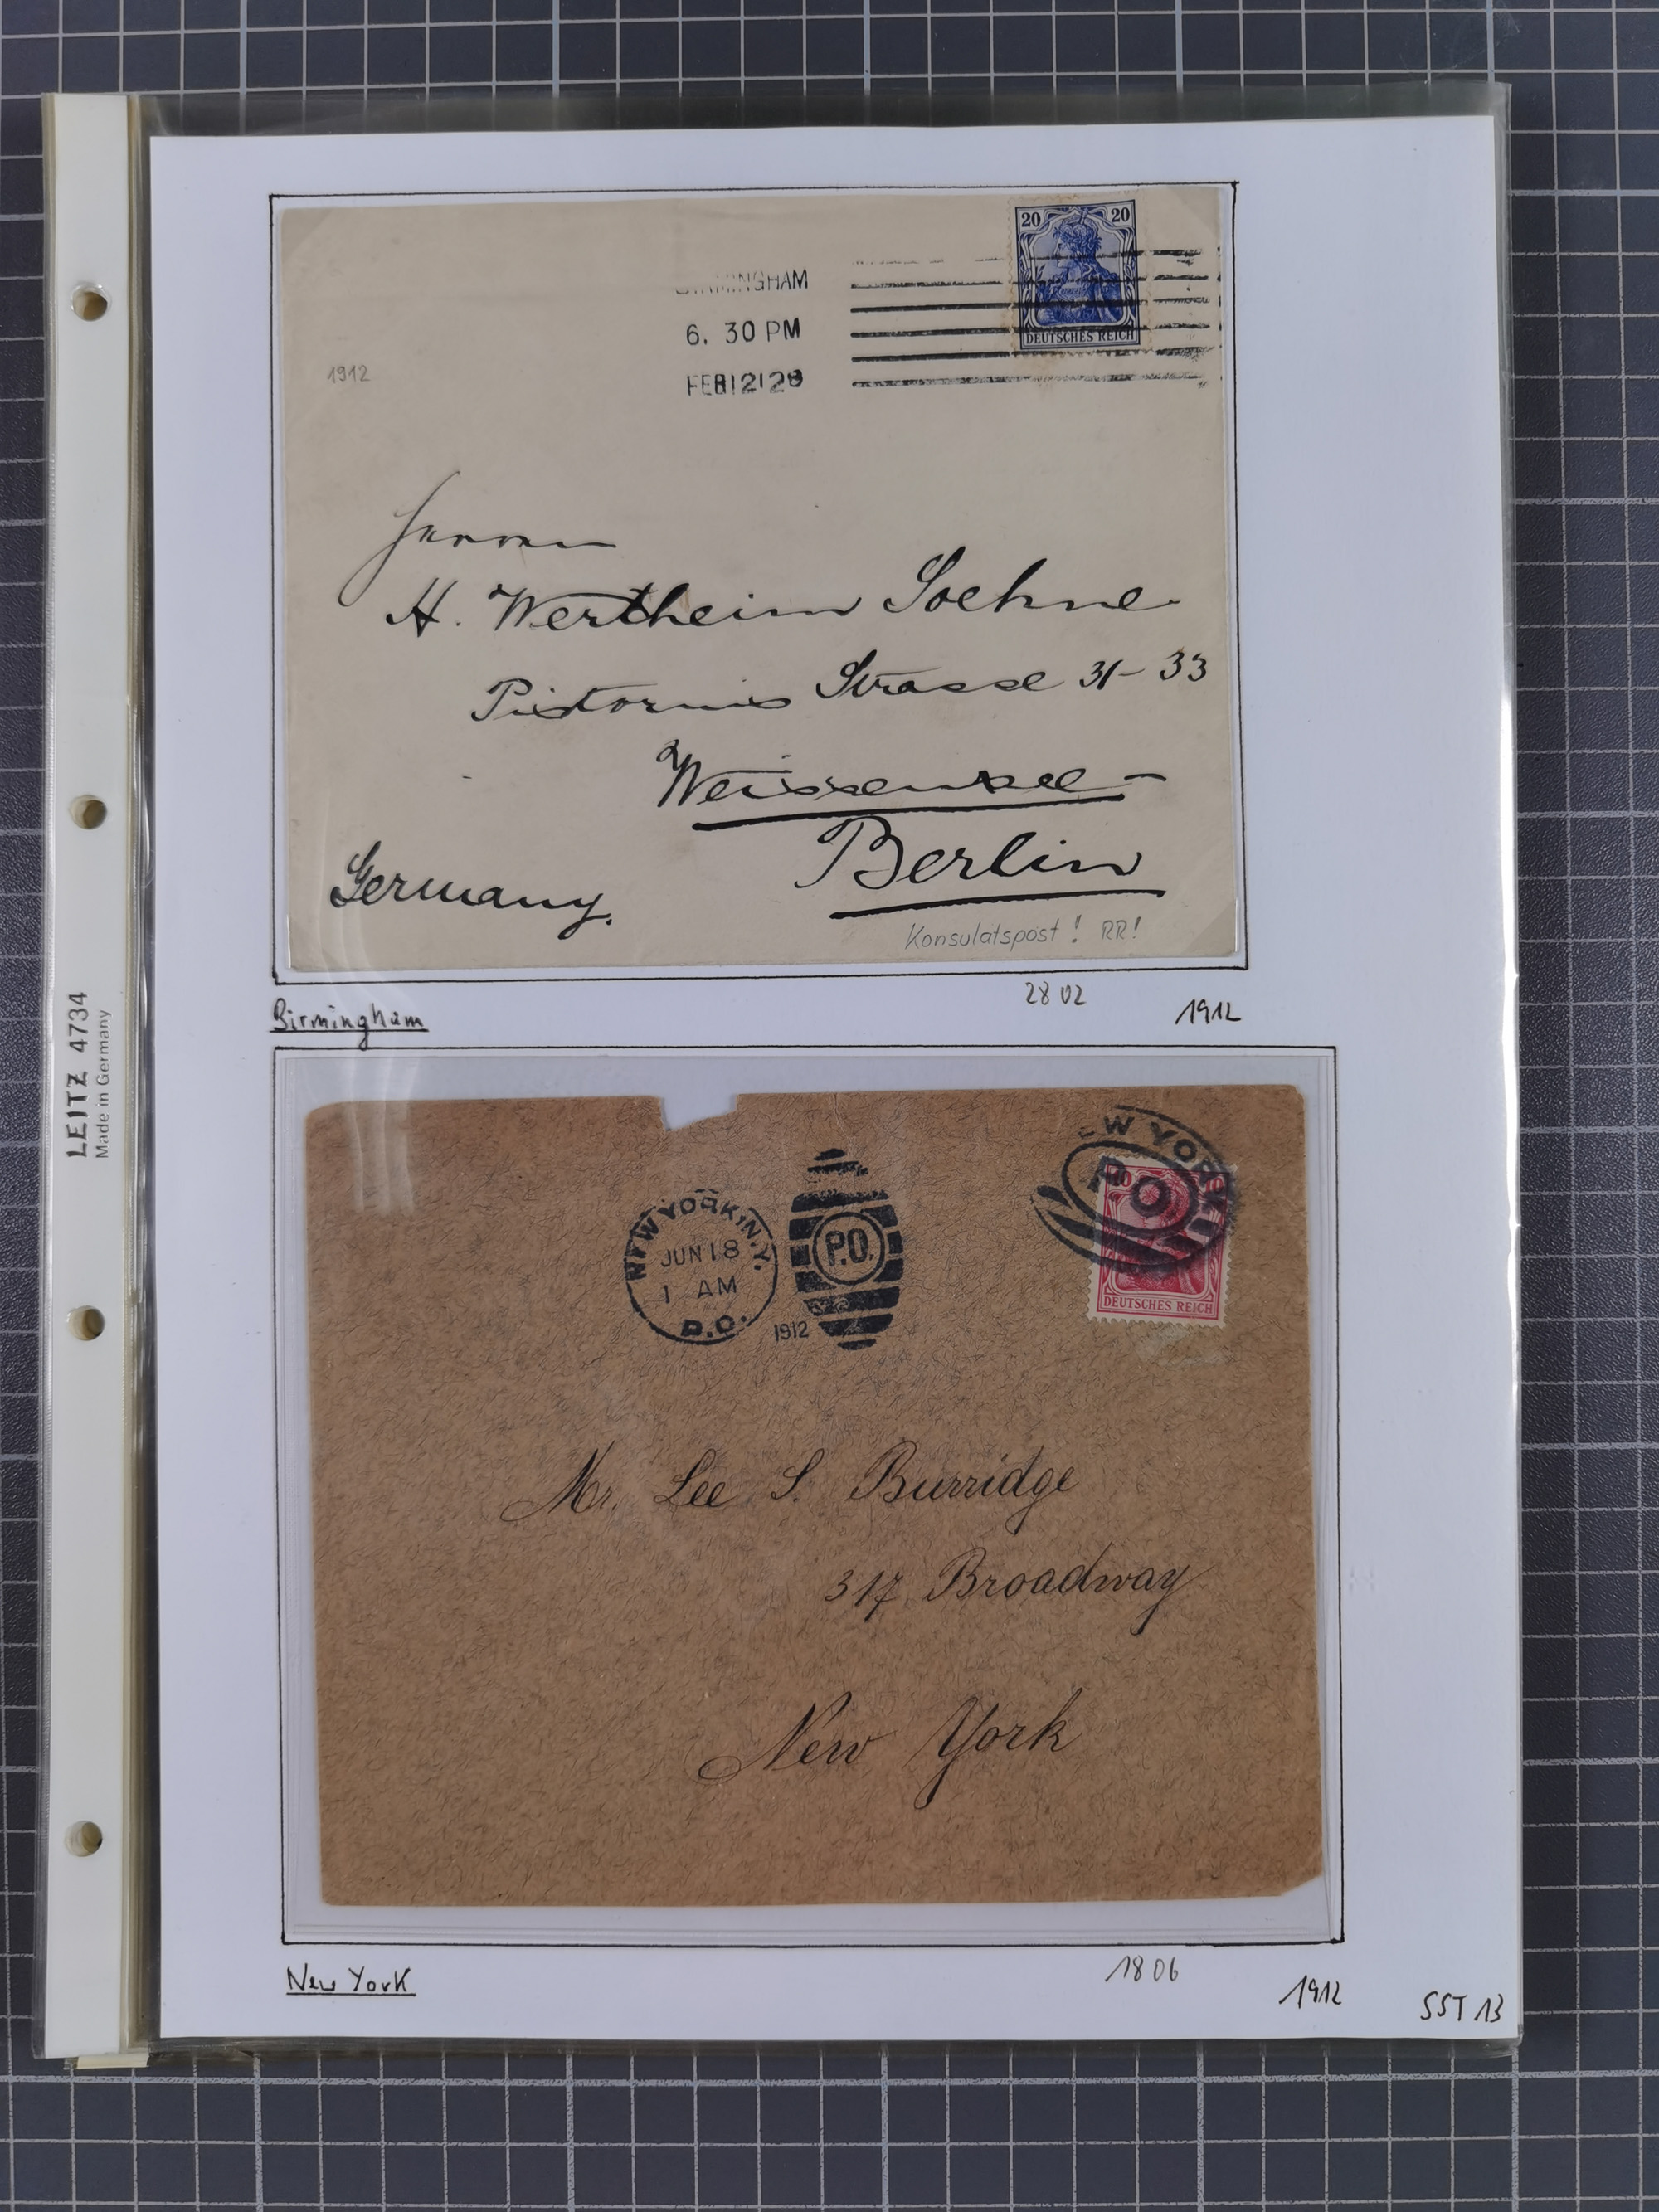 20 20
DEUTSCHES REICH
BIRMINGHAM
6. 30 PM
FEB 12 28
1912
Herren
H. Wertheim Soehne
Pistorius Strasse 31-33
Weissensee-
Berlin
Germany.
Konsulatspost! RR!
Birmingham
28 02
1912
LEITZ 4734
Made in Germany
NEW YORK, N.Y.
JUN 18
1 AM
P.O.
1912
P.O.
EW YORK
P.O.
10 10
DEUTSCHES REICH
Mr. Lee S. Burridge
317 Broadway
New York
New York
18 06
1912
SST 13